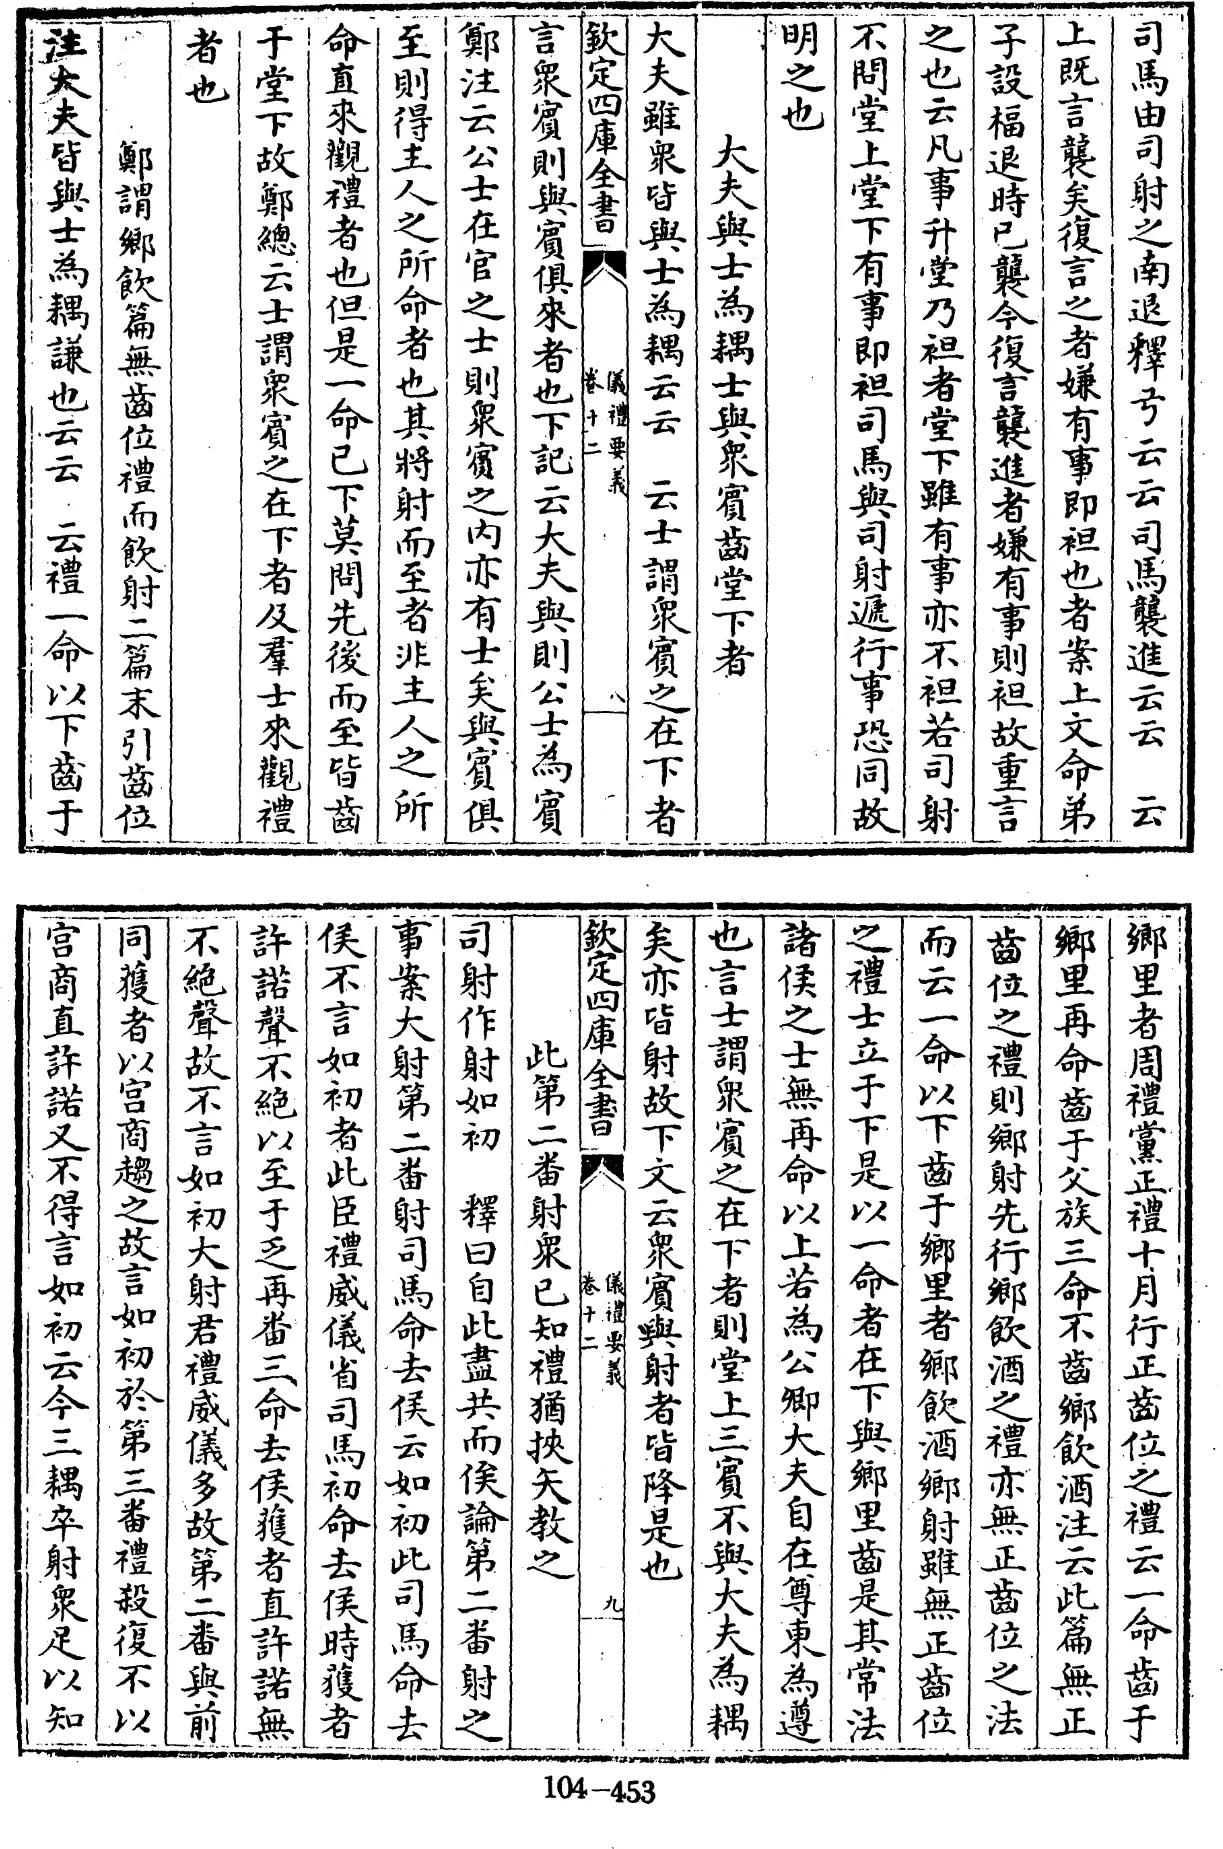 司馬由司射之南退釋弓云云司馬襲進云云　云
上既言襲矣復言之者嫌有事即袒也者案上文命弟
子設楅退時已襲今復言襲進者嫌有事則袒故重言
之也云凡事升堂乃袒者堂下雖有事亦不袒若司射
不問堂上堂下有事即袒司馬與司射遞行事恐同故
明之也
大夫與士為耦士與衆賓齒堂下者
大夫雖衆皆與士為耦云云　云士謂衆賓之在下者
欽定四庫全書
儀禮要義
卷十二
八
言衆賓則與賓俱來者也下記云大夫與則公士為賓
鄭注云公士在官之士則衆賓之内亦有士矣與賓俱
至則得主人之所命者也其將射而至者非主人之所
命直來觀禮者也但是一命已下莫問先後而至皆齒
于堂下故鄭總云士謂衆賓之在下者及羣士來觀禮
者也
鄭謂鄉飲篇無齒位禮而飲射二篇末引齒位
注大夫皆與士為耦謙也云云　云禮一命以下齒于
鄉里者周禮黨正禮十月行正齒位之禮云一命齒于
鄉里再命齒于父族三命不齒鄉飲酒注云此篇無正
齒位之禮則鄉射先行鄉飲酒之禮亦無正齒位之法
而云一命以下齒于鄉里者鄉飲酒鄉射雖無正齒位
之禮士立于下是以一命者在下與鄉里齒是其常法
諸侯之士無再命以上若為公卿大夫自在尊東為遵
也言士謂衆賓之在下者則堂上三賓不與大夫為耦
矣亦皆射故下文云衆賓與射者皆降是也
欽定四庫全書
儀禮要義
卷十二
九
此第二番射衆已知禮猶挾矢教之
司射作射如初　釋曰自此盡共而俟論第二番射之
事案大射第二番射司馬命去侯云如初此司馬命去
侯不言如初者此臣禮威儀省司馬初命去侯時獲者
許諾聲不絕以至于乏再番三命去侯獲者直許諾無
不絕聲故不言如初大射君禮威儀多故第二番與前
同獲者以宮商趨之故言如初於第三番禮殺復不以
宮商直許諾又不得言如初云今三耦卒射衆足以知
104-453